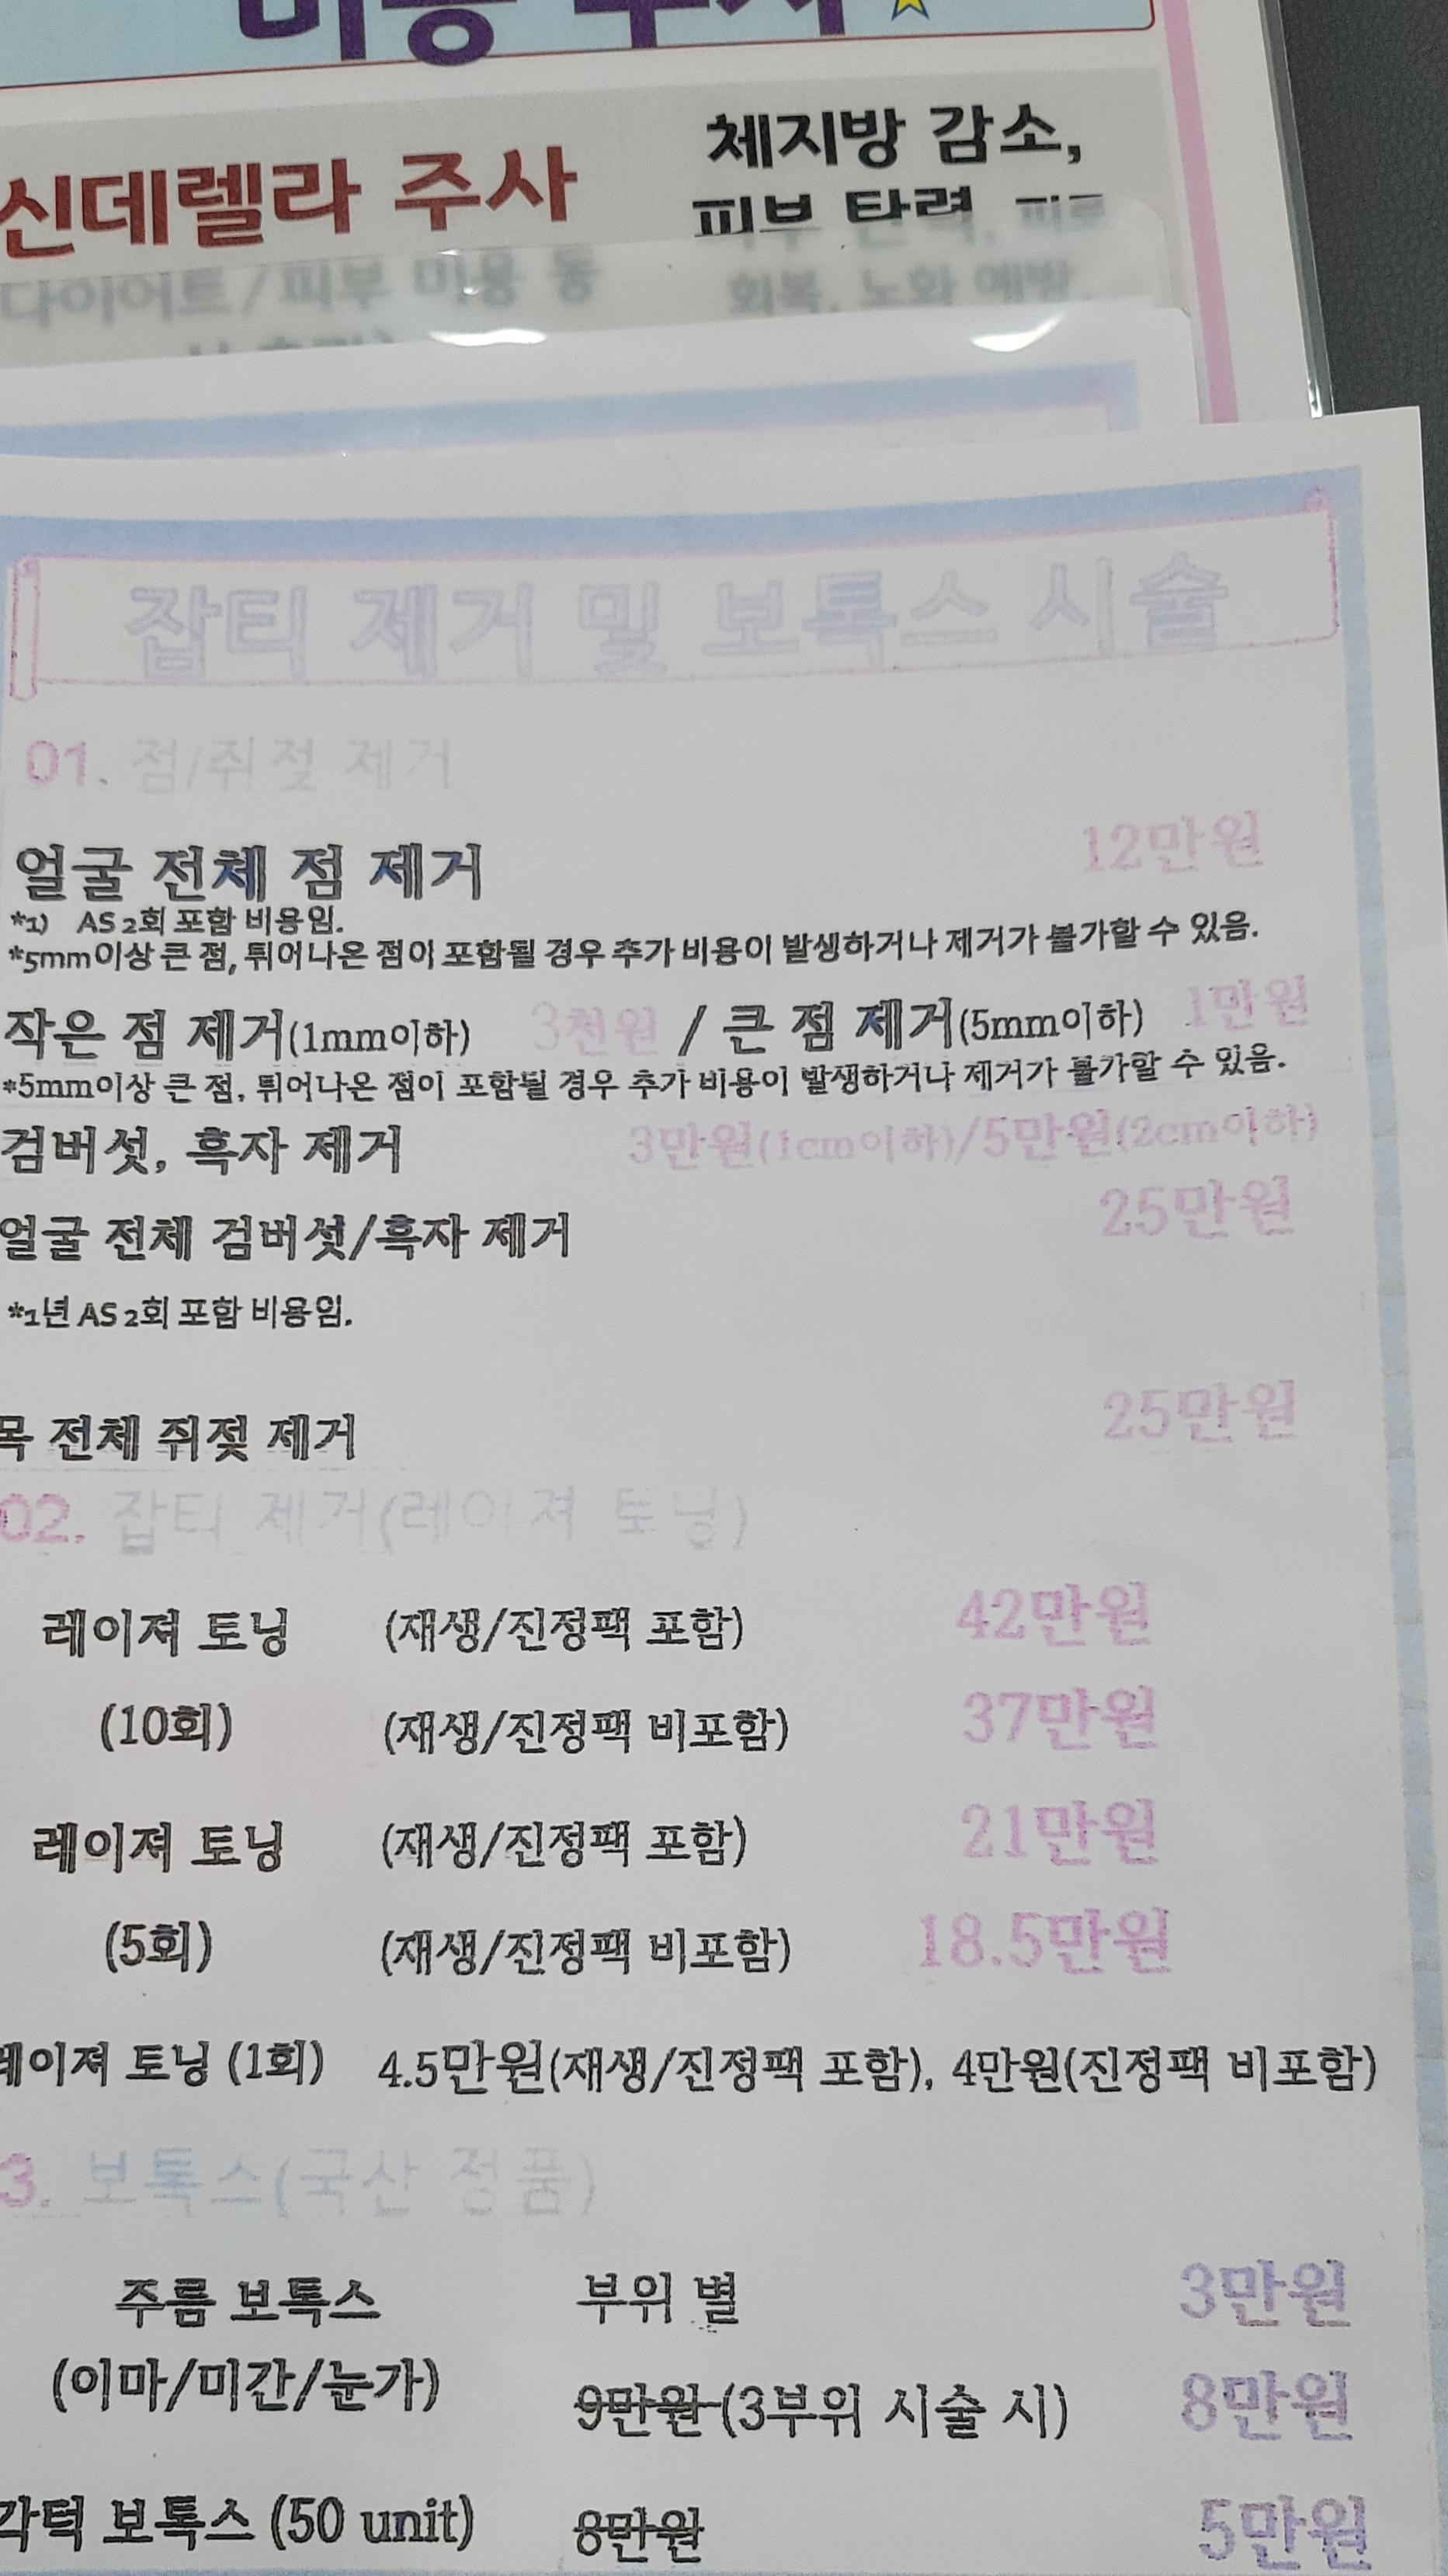 미용 주사
신데렐라 주사
체지방 감소,
피부 탄력, 피로
다이어트/피부 미용 동
회복, 노화 예방,
잡티 제거 및 보톡스 시술
01. 점/쥐젖 제거
얼굴 전체 점 제거 12만원
*1) AS 2회 포함 비용임.
*5mm이상 큰 점, 튀어나온 점이 포함될 경우 추가 비용이 발생하거나 제거가 불가할 수 있음.
작은 점 제거(1mm이하) 3천원 / 큰 점 제거(5mm이하) 1만원
*5mm이상 큰 점, 튀어나온 점이 포함될 경우 추가 비용이 발생하거나 제거가 불가할 수 있음.
검버섯, 흑자 제거 3만원(1cm이하)/5만원(2cm이하)
얼굴 전체 검버섯/흑자 제거 25만원
*1년 AS 2회 포함 비용임.
목 전체 쥐젖 제거 25만원
02. 잡티 제거(레이져 토닝)
레이져 토닝 (재생/진정팩 포함) 42만원
(10회) (재생/진정팩 비포함) 37만원
레이져 토닝 (재생/진정팩 포함) 21만원
(5회) (재생/진정팩 비포함) 18.5만원
레이져 토닝 (1회) 4.5만원(재생/진정팩 포함), 4만원(진정팩 비포함)
3. 보톡스(국산 정품)
주름 보톡스 부위 별 3만원
(이마/미간/눈가) 9만원 (3부위 시술 시) 8만원
각턱 보톡스 (50 unit) 8만원 5만원